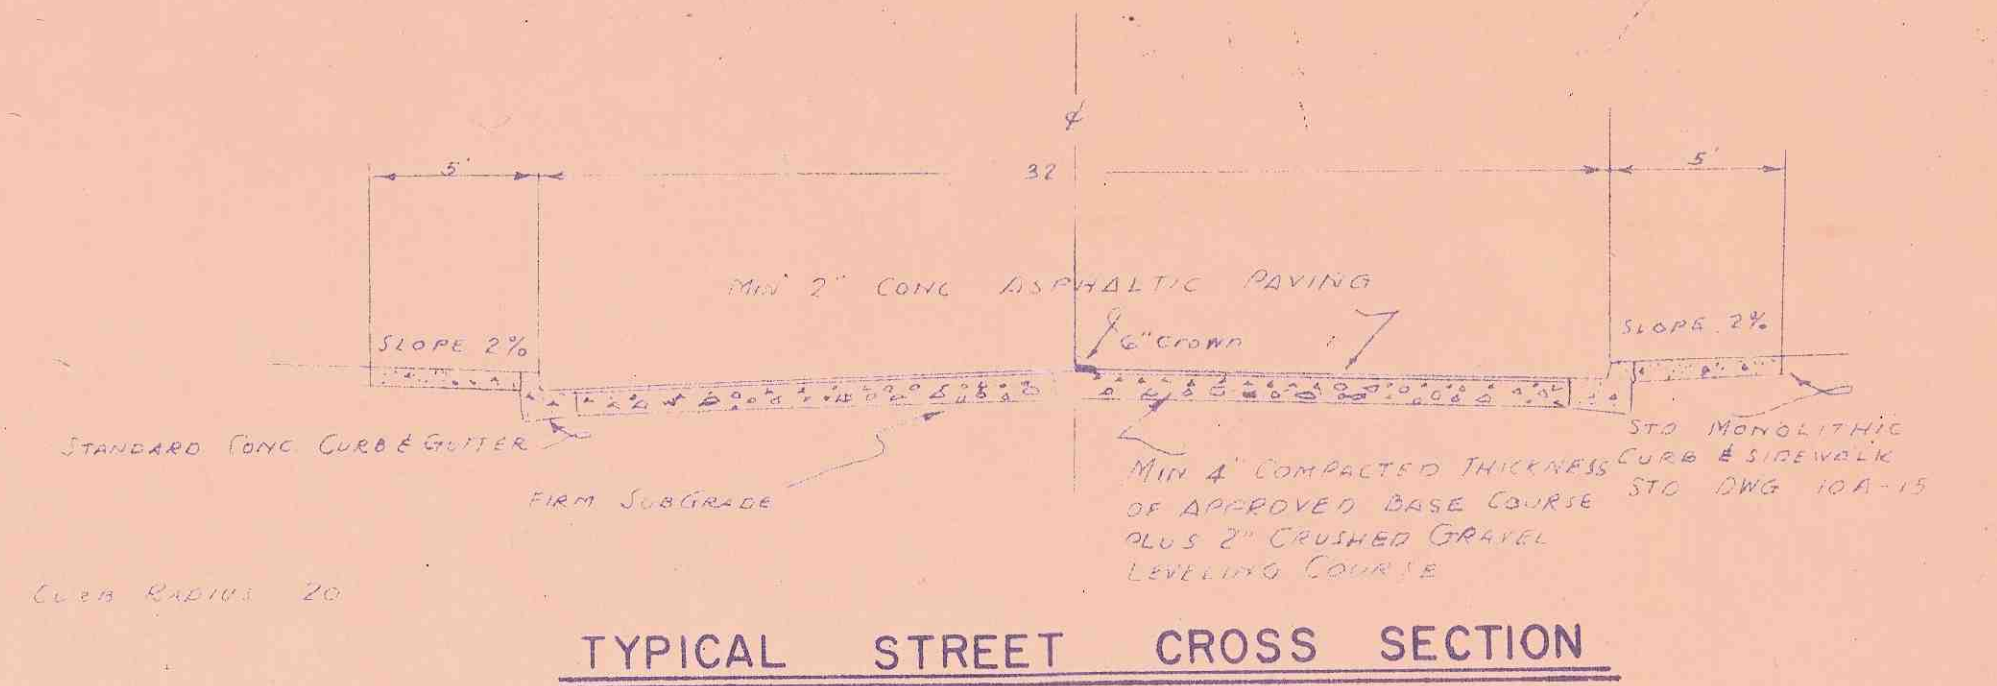 ℄
5'
32
5'
MIN 2" CONC ASPHALTIC PAVING
6" Crown
SLOPE 2%
SLOPE 2%
STANDARD CONC. CURB & GUTTER
FIRM SUBGRADE
MIN 4" COMPACTED THICKNESS
OF APPROVED BASE COURSE
PLUS 2" CRUSHED GRAVEL
LEVELING COURSE
STD MONOLITHIC
CURB & SIDEWALK
STD DWG 10A-15
CURB RADIUS 20
TYPICAL STREET CROSS SECTION